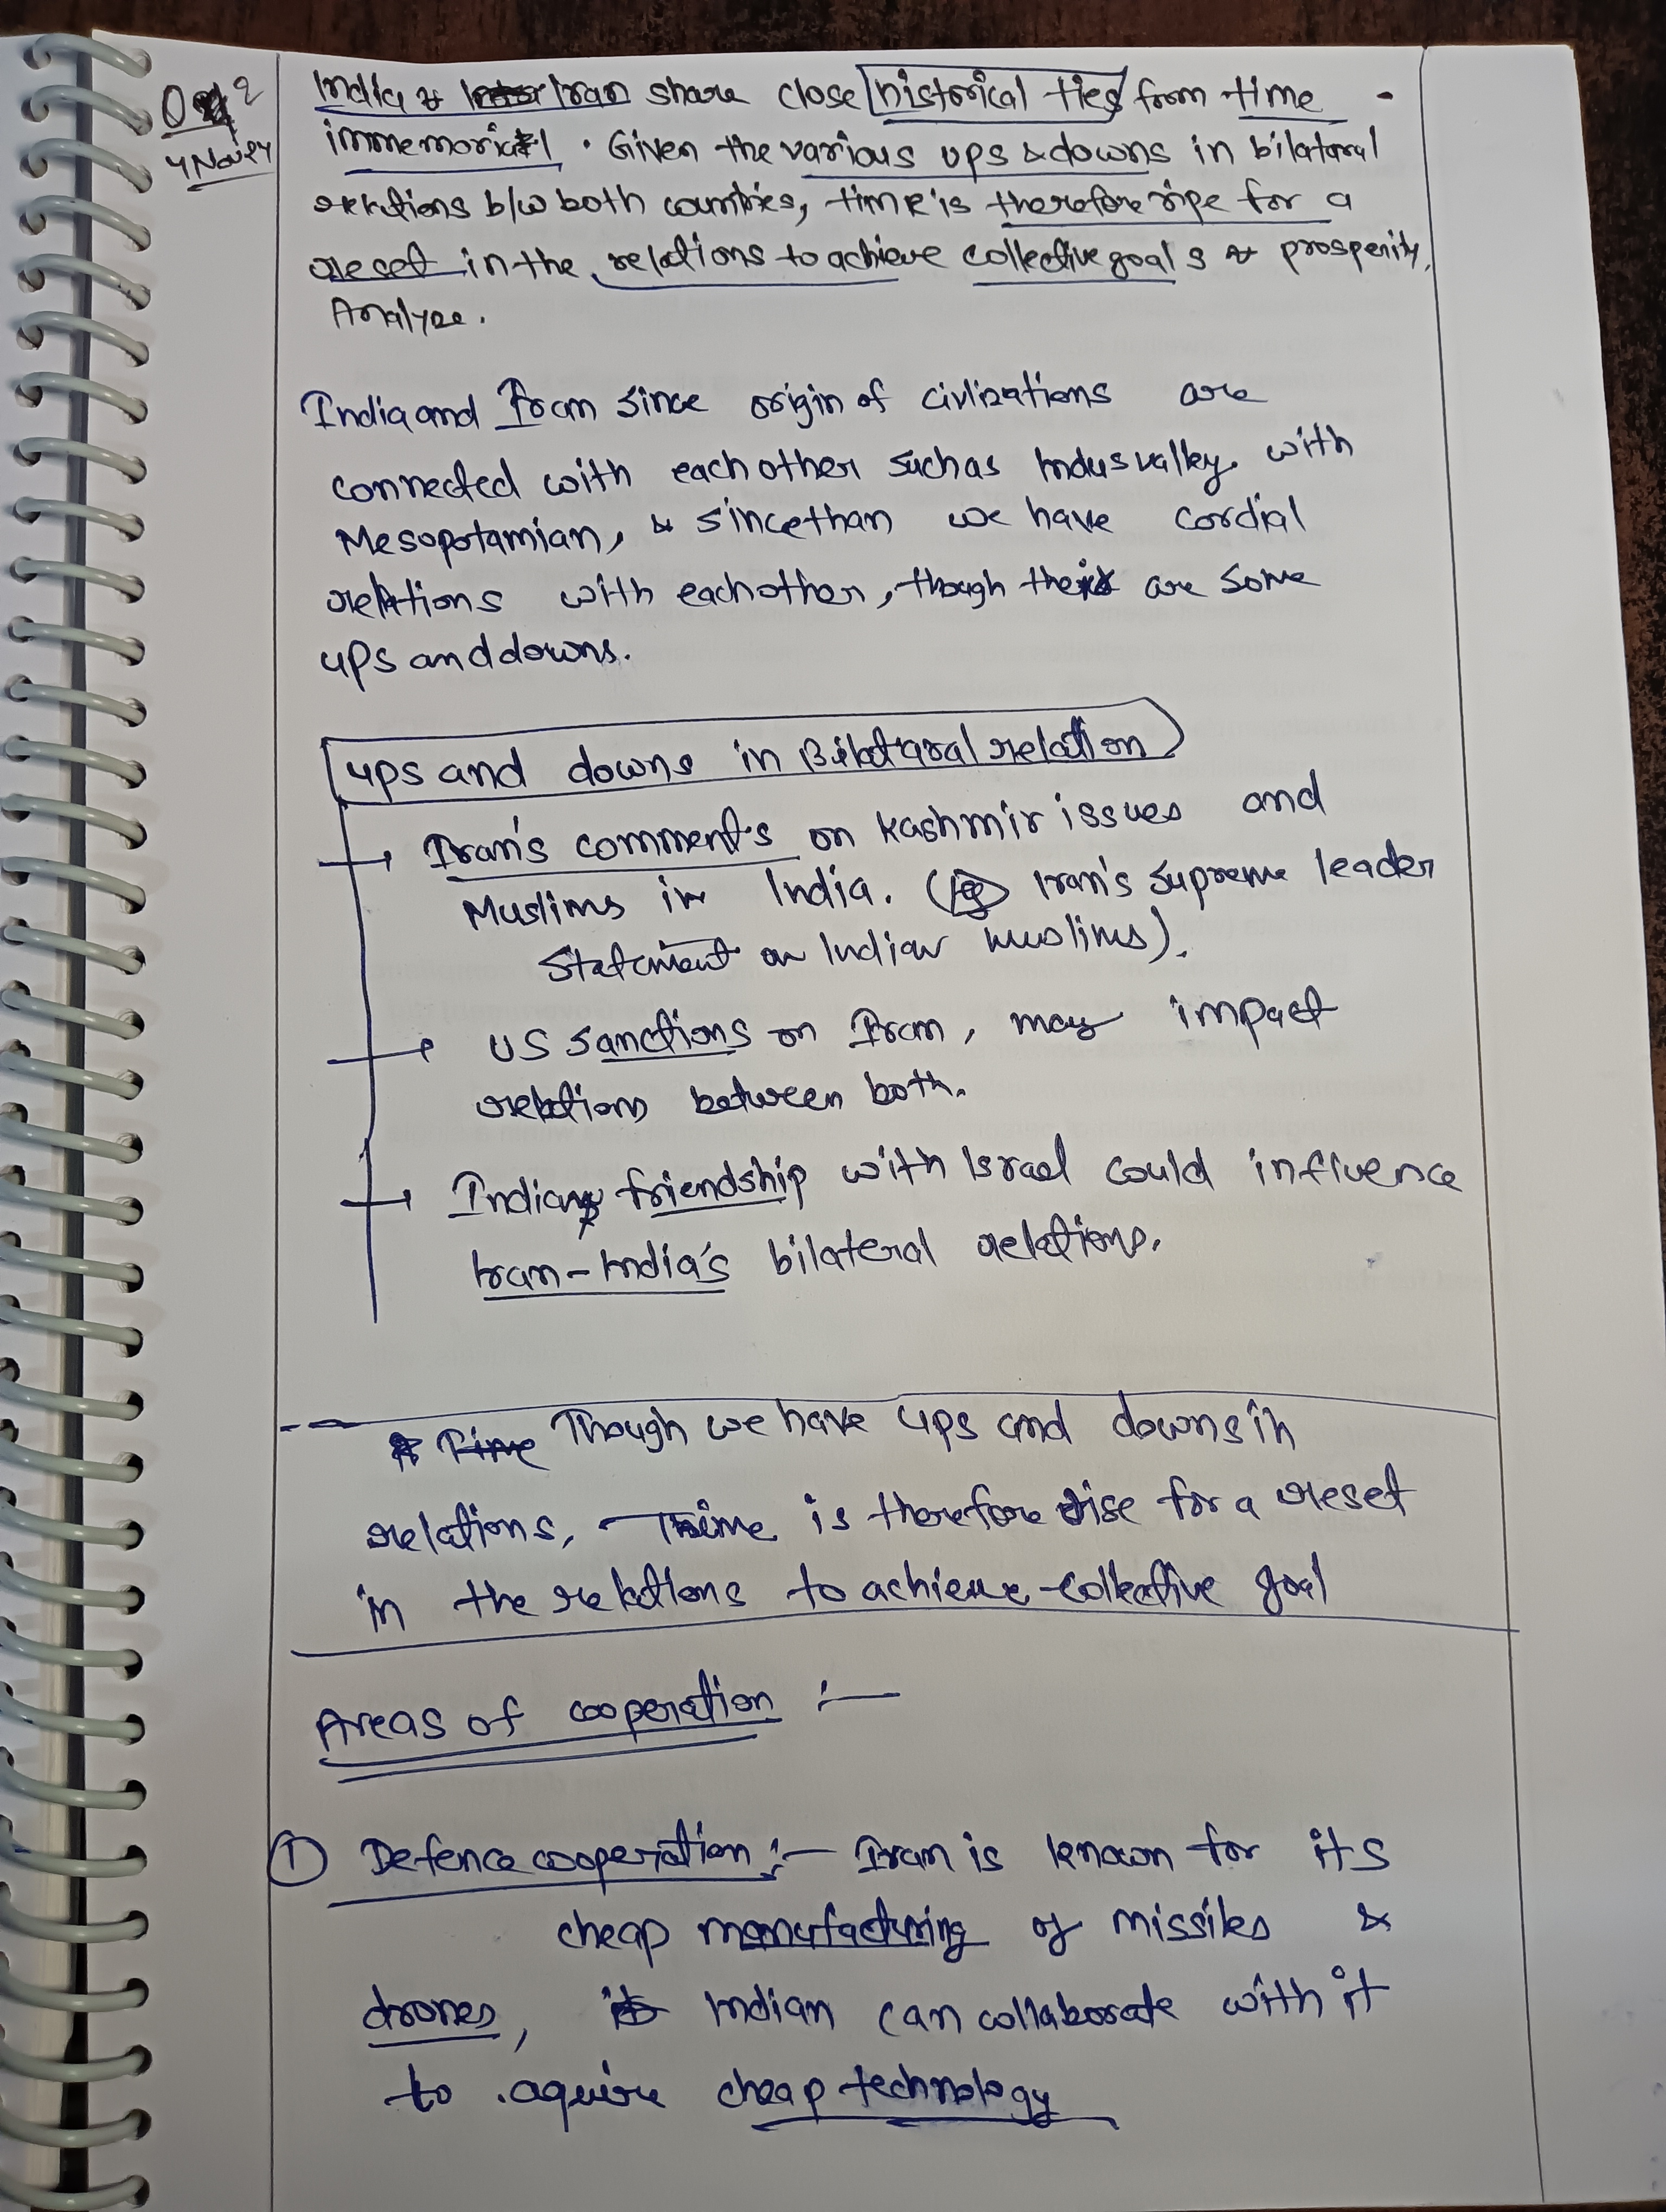 Q 2
4 Nov 24
India & Iran share close historical ties from time
immemorial. Given the various ups & downs in bilataral
relations b/w both countries, time is therefore ripe for a
reset in the relations to achieve collective goals & prosperity.
Analyze.
India and Iran since origin of civlizations are
connected with each other such as Indus valley with
Mesopotamian, & since than we have cordial
relations with each other, though there are some
ups and downs.
ups and downs in Bilataral relation
Iran's comments on Kashmir issues and
Muslims in India. (Eg Iran's Supreme leader
Statement on Indian Muslims).
US sanctions on Iran, may impact
relations between both.
Indian friendship with Israel could influence
Iran-India's bilateral relations.
Though we have ups and downs in
relations, Time is therefore rise for a reset
in the relations to achieve collective goal
Areas of cooperation :-
1 Defence cooperation :- Iran is known for its
cheap manufacturing of missiles &
drones, Indian can collaborate with it
to aquire cheap technology